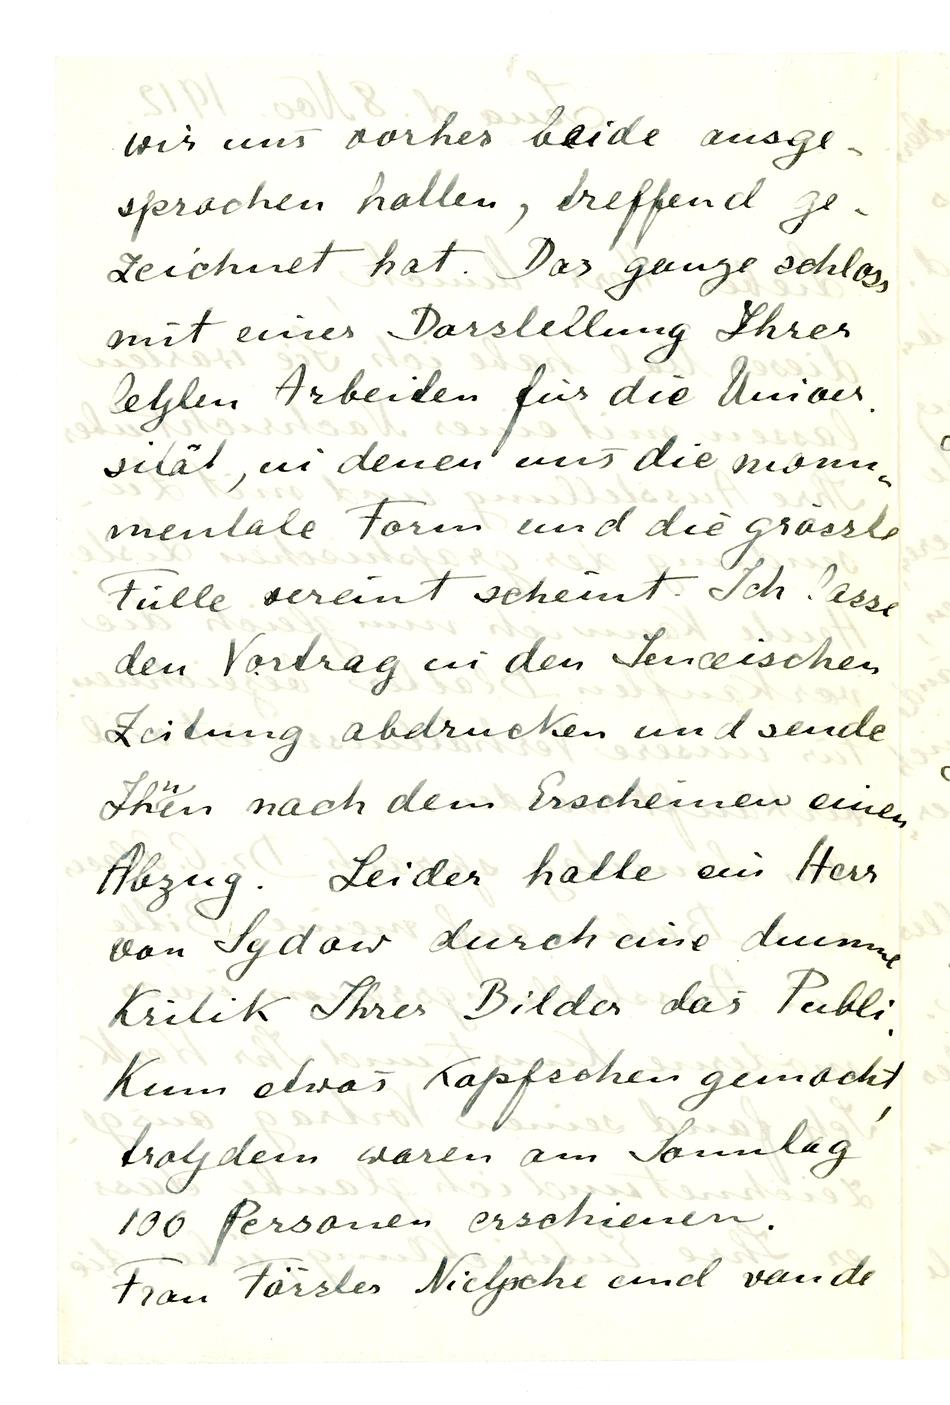 wir uns vorher beide ausge-
sprochen hatten, treffend ge-
zeichnet hat. Das ganze schloss
mit einer Darstellung Ihrer
letzten Arbeiten für die Univer-
sität, in denen uns die monu-
mentale Form und die grösste
Fülle vereint scheint. Ich lasse
den Vortrag in den Jenaischen
Zeitung abdrucken und sende
Ihnen nach dem Erscheinen einen
Abzug. Leider hatte ein Herr
von Sydow durch eine dumme
Kritik Ihrer Bilder das Publi-
kum etwas kopfscheu gemacht,
trotzdem waren am Sonntag
100 Personen erschienen.
Frau Förster Nietzsche und van de